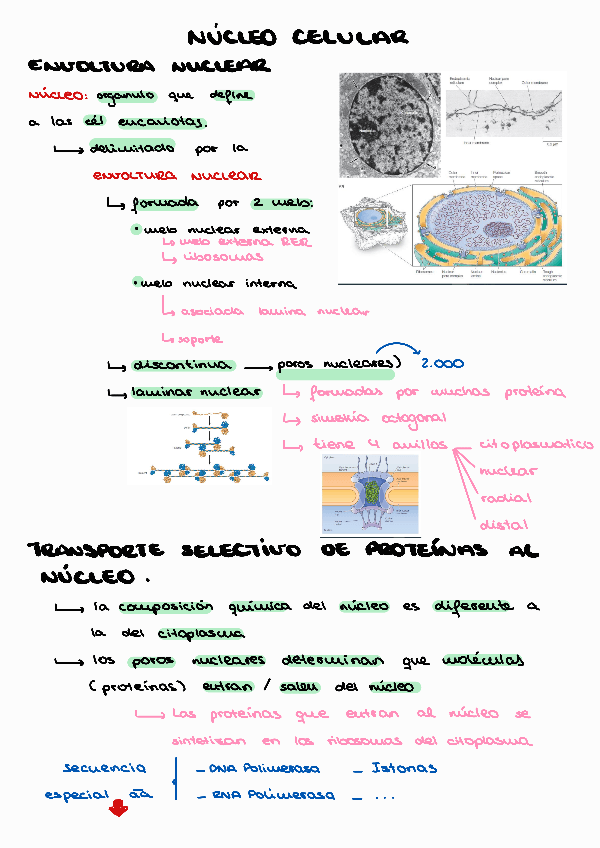 NÚCLEO CELULAR
ENVOLTURA NUCLEAR
NÚCLEO: organulo que define
a las cél eucariotas.
↳ delimitado por la
ENVOLTURA NUCLEAR
↳ formada por 2 mets:
• meb nuclear externa
↳ meb externa RER
↳ ribosomas
• meb nuclear interna
↳ asociada lamina nuclear
↳ soporte
↳ discontinua → poros nucleares) 2.000
↳ laminar nuclear
↳ formadas por muchas proteína
↳ simetría octagonal
↳ tiene 4 anillos
citoplasmatico
nuclear
radial
distal
TRANSPORTE SELECTIVO DE PROTEÍNAS AL
NÚCLEO.
↳ la composición química del núcleo es diferente a
la del citoplasma
↳ los poros nucleares determinan que moléculas
(proteínas) entran / salen del núcleo
↳ Las proteínas que entran al núcleo se
sintetizan en los ribosomas del citoplasma
secuencia
especial aa
- DNA Polimerasa - Istonas
- RNA Polimerasa - ...